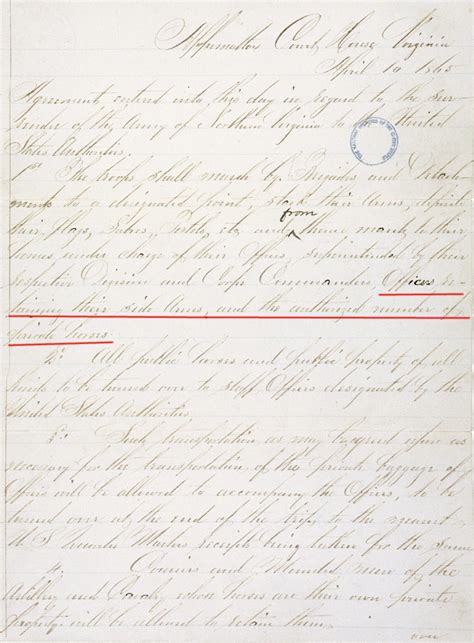 Appomattox Court House Virginia
April 10 1865
Agreement entered into this day in regard to the sur-
render of the Army of Northern Virginia to the United
States Authorities.
1st The troops shall march by Brigades and Detach-
ments to a designated point, stack their Arms, deposit
their flags, Sabres, Pistols, etc and from thence march to their
homes under charge of their Officers, superintended by their
respective Division and Corps Commanders, Officers re-
taining their side Arms, and the authorized number of
private horses.
2. All public horses and public property of all
kinds to be turned over to staff Officers designated by the
United States Authorities.
3. Such transportation as may be agreed upon as
necessary for the transportation of the private baggage of
Officers will be allowed to accompany the Officers, to be
turned over at the end of the trip to the nearest
U.S. Quarter Masters, receipts being taken for the same.
4. Couriers and Mounted men of the
Artillery and Cavalry, whose horses are their own private
property will be allowed to retain them.
over